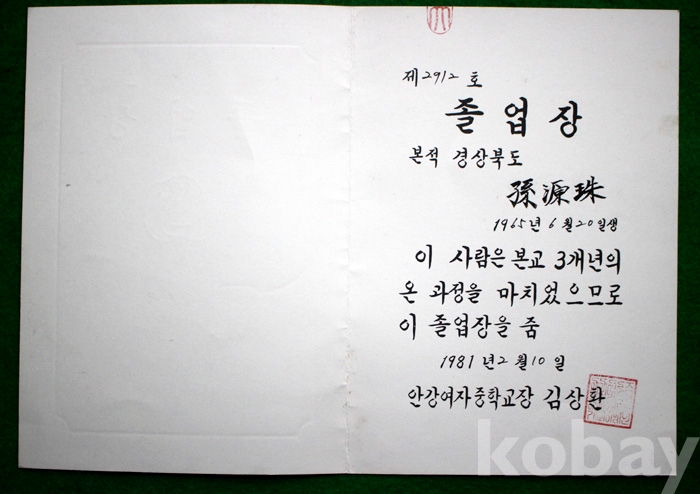 제2912호
졸업장
본적 경상북도
孫源珠
1965년 6월 20일생
이 사람은 본교 3개년의
온 과정을 마치었으므로
이 졸업장을 줌
1981년 2월 10일
안강여자중학교장 김상환
kobay